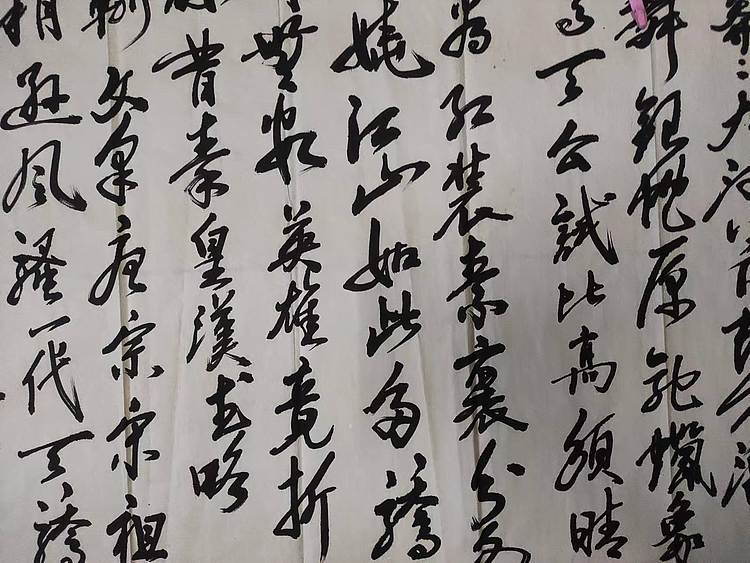 大河
舞銀蛇原馳蠟象
天公試比高須晴
紅裝素裹分外
嬈江山如此多嬌
無數英雄竟折
昔秦皇漢武略
輸文采唐宗宋祖
稍遜風騷一代天驕